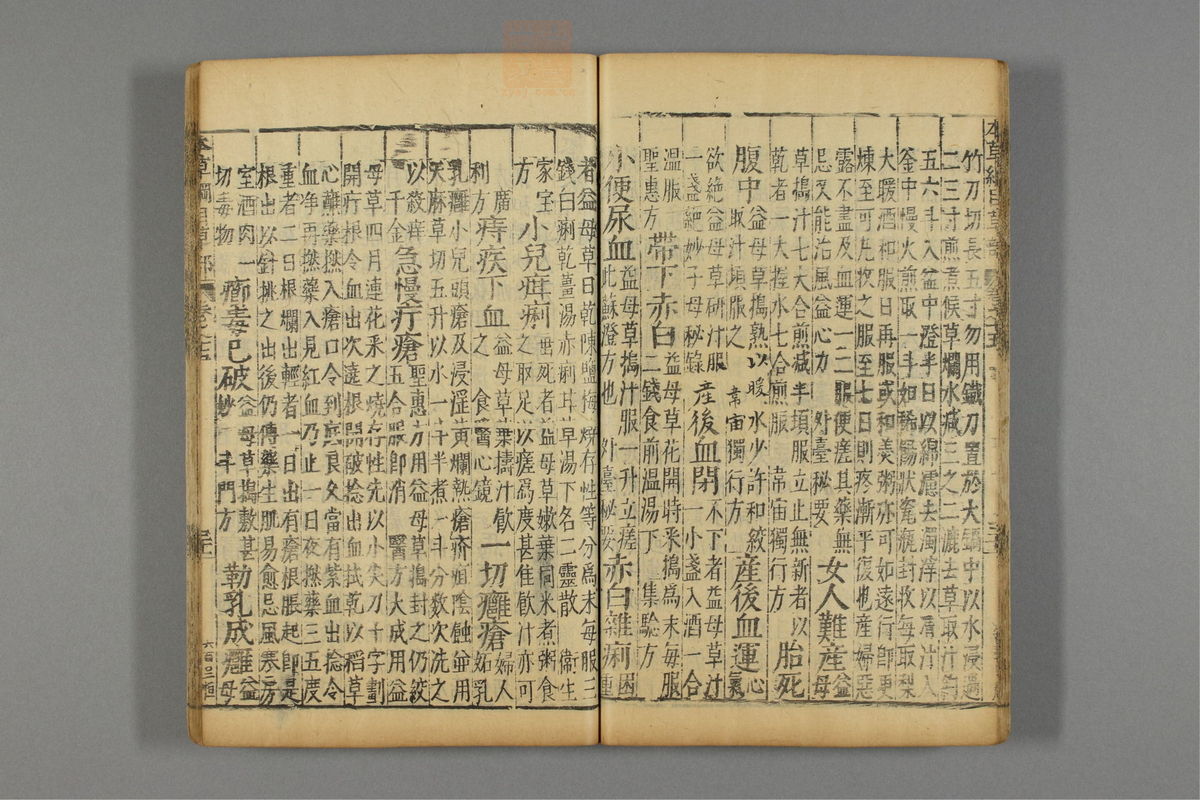 竹刀切長五寸勿用鐵刀置於大鍋中以水浸過
二三寸煎煮候草爛水減三之二漉去草取汁約
五六斗入盆中澄半日以綿濾去濁滓以清汁入
釜中慢火煎取一斗如稀餳狀瓷瓶封收每取梨
大暖酒和服日再服或和羹粥亦可如遠行卽更
煉至可丸收之服至七日則疼漸平復也産婦惡
露不盡及血運一二服便瘥其藥無
忌又能治風益心力 外臺秘要 女人難産 益母
草搗汁七大合煎減半頓服立止無新者以
乾者一大握水七合煎服 韋宙獨行方 胎死
腹中 益母草搗熟以暖水少許和絞
取汁頓服之 韋宙獨行方 産後血運 心氣
欲絶益母草研汁服
一盞絶妙子母秘錄 産後血閉 不下者益母草汁
一小盞入酒一合
温服
聖惠方 帶下赤白 益母草花開時采搗爲末每服
二錢食前温湯下 集驗方
小便尿血 益母草搗汁服一升立瘥
此蘇澄方也 外臺秘要 赤白雜痢 困重
者益母草日乾陳鹽梅燒存性等分爲末每服三
錢白痢乾薑湯赤痢甘草湯下名二靈散 衛生
家宝
方 小兒疳痢 垂死者益母草嫩葉同米煮粥食
之取足以瘥爲度甚佳飲汁亦可
廣
利方 痔疾下血 益母草葉擣汁飮
之 食醫心鏡 一切癰瘡 婦人
妬乳
乳癰小兒頭瘡及浸淫黃爛熱瘡疥疽陰蝕並用
天麻草切五升以水一斗半煮一斗分數次洗之
以殺痒
千金 急慢疔瘡 聖惠方用益母草搗封之仍絞
五合服卽消 醫方大成用益
母草四月連花采之燒存性先以小尖刀十字劃
開疔根令血出次遶根開破捻出血拭乾以稻草
心蘸藥撚入瘡口令到底良久當有紫血出捻令
血净再撚藥入見紅血乃止一日夜撚藥三五度
重者二日根爛出輕者一日出有瘡根脹起卽是
根出以針挑之出後仍傳藥生肌易愈忌風寒房
室酒肉一
切毒物 癤毒已破 益母草搗敷甚
妙 斗門方 勒乳成癰 益
母